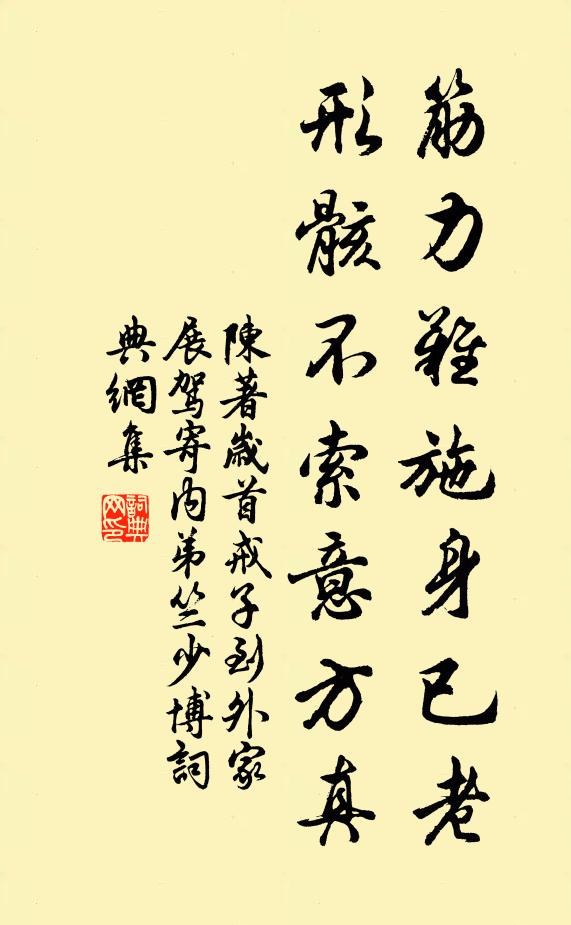 筋力難施身已老
形骸不索意方真
陳著歲首戒子到外家
展駕寄內弟竺少博詞
典網集
詞典網印